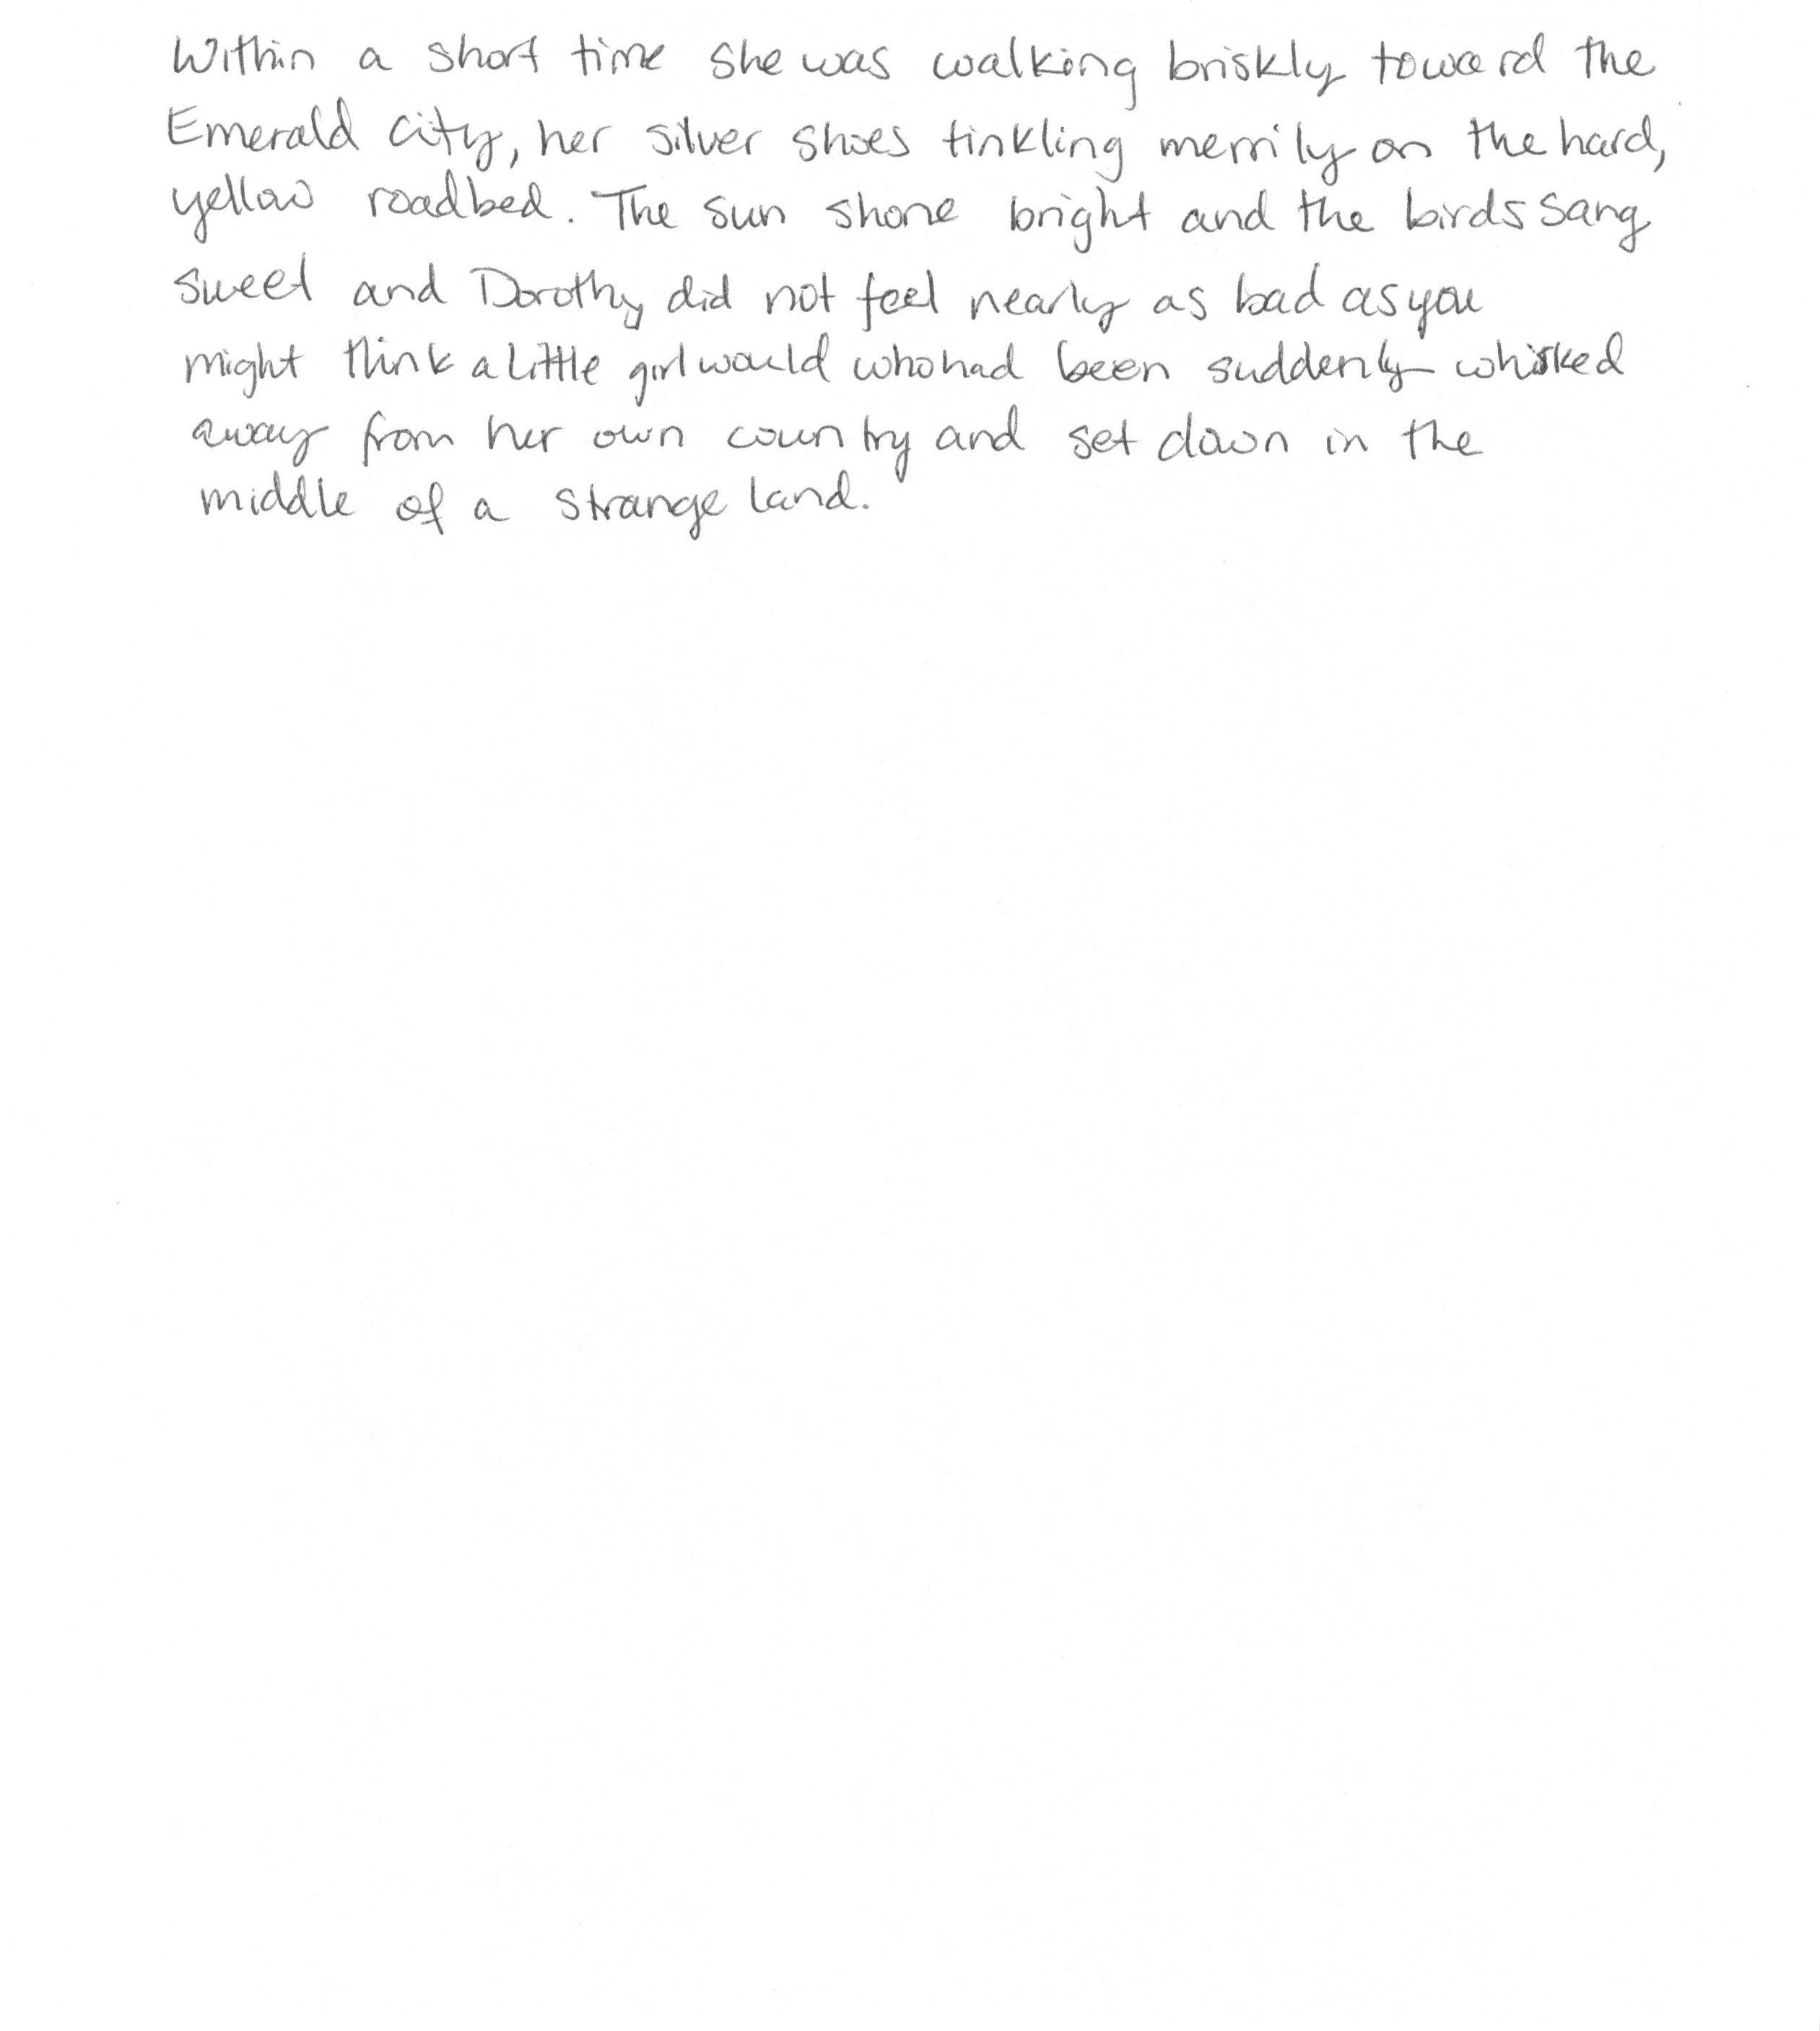 Within a short time she was walking briskly toward the
Emerald City, her silver shoes tinkling merrily on the hard,
yellow roadbed. The sun shone bright and the birds sang
sweet and Dorothy did not feel nearly as bad as you
might think a little girl would who had been suddenly whisked
away from her own country and set down in the
middle of a strange land.